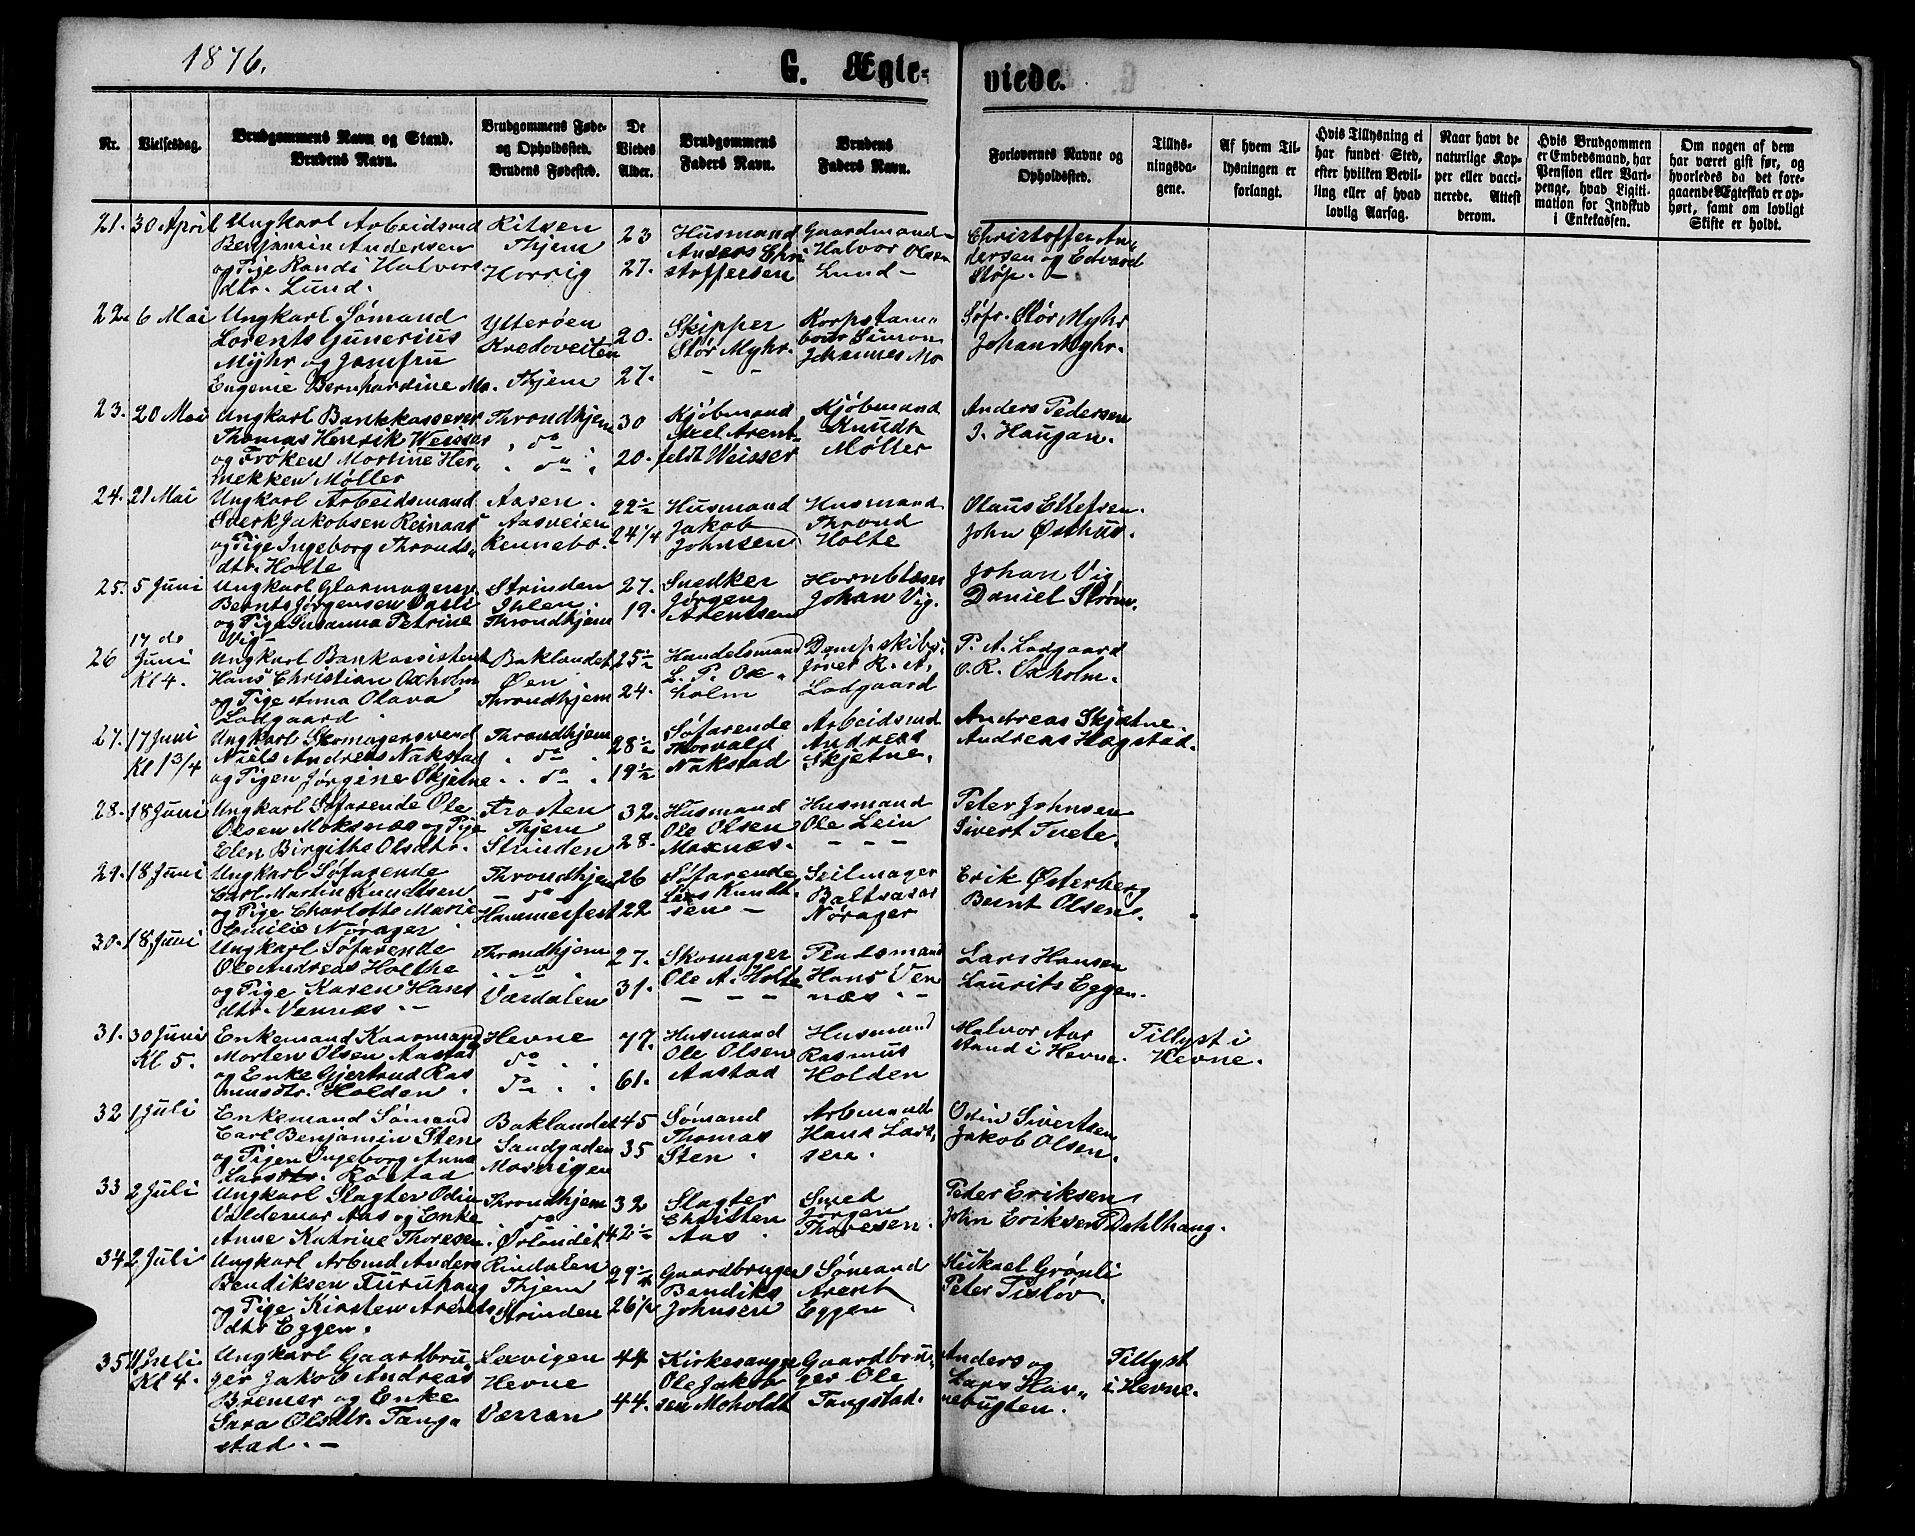 1876.
G. Ægte-
viede.
Nr.
Vielsesdag.
Brudgommens Navn og Stand.
Brudens Navn.
Brudgommens Føde-
og Opholdssted.
Brudens Fødested.
De
Viedes
Alder.
Brudgommens
Faders Navn.
Brudens
Faders Navn.
Forlovernes Navne og
Opholdssted.
Tillys-
ningsda-
gene.
Af hvem Til-
lysningen er
forlangt.
Hvis Tillysning ei
har fundet Sted,
efter hvilken Bevil-
ling eller af hvad
lovlig Aarsag.
Naar havt de
naturlige Kop-
per eller vacci-
nerede. Attest
derom.
Hvis Brudgommen
er Embedsmand, har
Pension eller Vart-
penge, hvad Ligiti-
mation for Indskud
i Enkekassen.
Om nogen af dem
har været gift før, og
hvorledes da det fore-
gaaende Ægteskab er op-
hørt, samt om lovligt
Skifte er holdt.
21. 30 April
Ungkarl Arbeidsmd
Benjamin Andersen
og Pige Randi Halvors
dtr. Lund.
Ritsen
Thjem
Horrig
23
27.
Husmand
Anders Chri
stoffersen
Gaardmand
Halvor Olsen
Lund
Christoffer An
dersen og Edvard
Støp.
22. 6 Mai
Ungkarl Sømand
Lorents Gunerius
Myhr og Jomfru
Eugenie Bernhardine Mo.
Ytterøen
Kredoveiten
Thjem
20.
27.
Skipper
Stör Myhr.
Korpstam
bour Simon
Johannes Mo
Søfr. Stör Myhr
Johan Myhr.
23. 20 Mai
Ungkarl Bankkasserer
Thomas Henrik Weisser
og Frøken Martine Her
mekken Møller
Throndhjem
do
do
30
20.
Kjøbmand
Axel Arent
feldt Weisser
Kjøbmand
Knudt
Møller
Anders Pedersen
I. Haugan.
24. 21 Mai
Ungkarl Arbeidsmand
Sverk Jakobsen Reinaas
og Pige Ingeborg Thronds
dtr. Holte
Aasen.
Aasveien
Rennebo.
22½
24 1/4
Husmand
Jakob
Johnsen
Husmand
Thrond
Holte
Olaus Ellefsen.
John Østhus.
25. 5 Juni
Ungkarl Glarmagersv.
Bernts Jørgensen
og Pige Susanna Petrine
Vig
Strinden
Ihlen.
Throndhjem
27.
19.
Snedker
Jørgen
Arentsen
Hornblæser
Johan Vig.
Johan Vig,
Daniel Strøm.
26 17 de
Juni
Kl 4.
Ungkarl Bankassistent
Hans Christian Oxholm
og Pige Anna Olava
Lodgaard
Baklandet
Øen
Throndhjem
25½
24.
Handelsmand
L. P. Ox
holm
Dampskibs
fører R. A.
Lodgaard
P. A. Lodgaard
O. R. Oxholm.
27. 17 Juni
Kl 1 3/4
Ungkarl Skomagersvend
Niels Andreas Nakstad
og Pigen Jørgine Skjetne
Throndhjem
do
do
28½
19½
Søfarende
Thorvald
Nakstad
Arbeidsmd
Andreas
Skjetne.
Andreas Skjetne.
Andreas Hagstad.
28. 18 Juni
Ungkarl Søfarende Ole
Olsen Moksnæs og Pige
Elen Birgithe Olsdtr.
Frosten
Thjem
Strinden
32.
28.
Husmand
Ole Olsen
Moxnæs.
Husmand
Ole Lein
Peter Johnsen
Sivert Tvete.
29. 18 Juni
Ungkarl Søfarende
Carl Martin Knudtsen
og Pige Charlotte Marie
Emilie Nørager.
Throndhjem
do
Hammerfest
26
22
Søfarende
Lars Knudt
sen
Seilmager
Baltsasar
Nørager
Erik Østerberg
Bernt Olsen.
30. 18 Juni
Ungkarl Søfarende
Ole Andreas Holthe
og Pige Karen Hans
dtr. Vennæs.
Throndhjem
do
Værdalen
27.
31.
Skomager
Ole A. Holte
Pladsmand
Hans Ven
næs
Lars Hansen
Laurits Eggen.
31. 30 Juni
Kl 5.
Enkemand Kaarmand
Morten Olsen Aastad
og Enke Gjertrud Ras
musdtr. Holden
Hevne
do
do
77.
61.
Husmand
Ole Olsen
Aastad
Husmand
Rasmus
Holden
Halvor Aar
stand i Hevne.
Tillyst i
Hevne.
32 1 Juli
Enkemand Sømand
Carl Benjamin Sten
og Pigen Ingeborg Anna
Larsdtr. Røstad
Baklandet
Sandgaden
Morvigen
45
35
Sømand
Thomas
Sten
Arbmand
Hans Lar
sen.
Odin Sivertsen
Jakob Olsen.
33 2 Juli
Ungkarl Slagter Odin
Valdemar Aas og Enke
Anne Katrine Thoresen
Throndhjem
do
Ørlandet
32
42½
Slagter
Christen
Aas
Smed
Jørgen
Thoresen.
Peter Eriksen
John Eriksen Dahlhaug.
34 2 Juli
Ungkarl Arbmd Anders
Bendiksen Furuhaug
og Pige Kirsten Arents
dtr Eggen.
Rindalen
Thjem
Strinden
29½
26½
Gaardbruger
Bendiks
Johnsen
Sømand
Arent
Eggen
Mickael Grønli
Peter Tisløv.
35 11 Juli
Kl 4.
Ungkarl Gaardbru
ger Jakob Andreas
Bremer og Enke
Sara Olsdtr. Tang
stad.
Lexvigen
Hevne
Værran
44
44.
Kirkesanger
Ole Jakob
sen Moholdt
Gaardbru
ger Ole
Tangstad.
Anders og
Lars Hav
nebugten.
Tillyst
i Hevne.